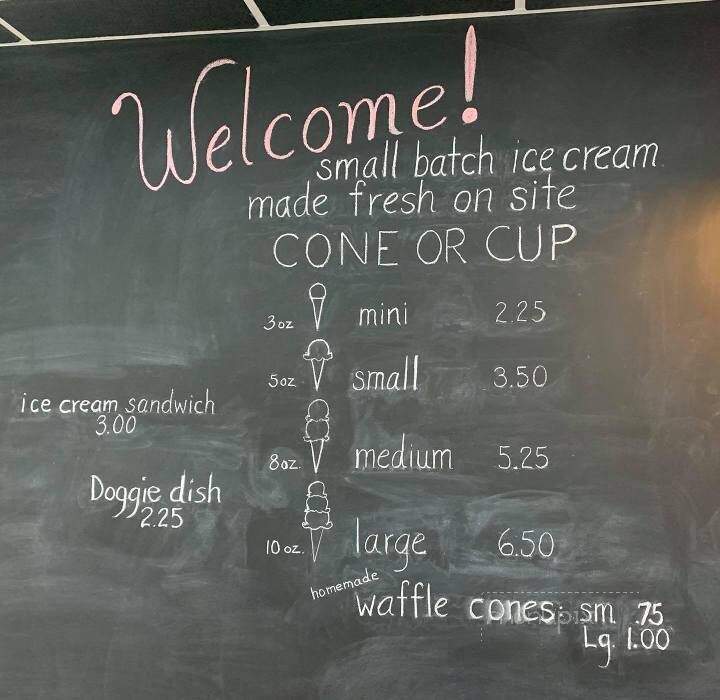 Welcome!
small batch ice cream
made fresh on site
CONE OR CUP
3oz mini 2.25
5oz small 3.50
ice cream sandwich
3.00
8oz. medium 5.25
Doggie dish
2.25
10 oz. large 6.50
homemade
waffle cones: sm .75
Lg. 1.00